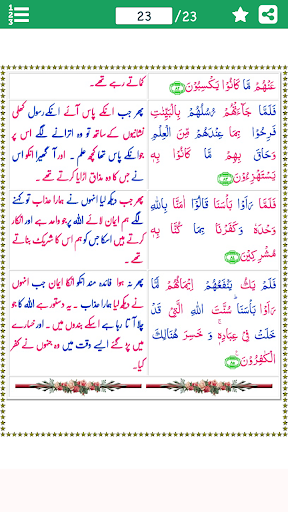 1
2
3
23
/23
عَنۡهُمۡ مَّا كَانُوۡا يَكۡسِبُوۡنَ ﴿۸۲﴾
کماتے رہے تھے۔
فَلَمَّا جَآءَتۡهُمۡ رُسُلُهُمۡ بِالۡبَيِّنٰتِ
فَرِحُوۡا بِمَا عِنۡدَهُمۡ مِّنَ الۡعِلۡمِ
وَحَاقَ بِهِمۡ مَّا كَانُوۡا بِهٖ
يَسۡتَهۡزِءُوۡنَ ﴿۸۳﴾
پھر جب انکے پاس آئے انکے رسول کھلی
نشانیوں کے ساتھ تو وہ اترانے لگے اس پر
جو انکے پاس تھا کچھ علم۔ اور آ گھیرا انکو اس
نے جس کا وہ مذاق اڑایا کرتے تھے۔
فَلَمَّا رَاَوۡا بَاۡسَنَا قَالُوۡۤا اٰمَنَّا بِاللّٰهِ
وَحۡدَهٗ وَكَفَرۡنَا بِمَا كُنَّا بِهٖ
مُشۡرِكِيۡنَ ﴿۸۴﴾
پھر جب دیکھ لیا انہوں نے ہمارا عذاب تو کہنے
لگے ہم ایمان لائے اللہ پر جو واحد ہے اور انکار
کرتے ہیں اسکا جس کو ہم اس کا شریک بناتے
تھے۔
فَلَمۡ يَكُ يَنۡفَعُهُمۡ اِيۡمَانُهُمۡ لَمَّا
رَاَوۡا بَاۡسَنَا ؕ سُنَّتَ اللّٰهِ الَّتِىۡ قَدۡ
خَلَتۡ فِىۡ عِبَادِهٖ ۚ وَخَسِرَ هُنَالِكَ
الۡكٰفِرُوۡنَ ﴿۸۵﴾
پھر نہ ہوا فائدہ مند انکو انکا ایمان جب انہوں
نے دیکھ لیا ہمارا عذاب۔ یہ دستور ہے اللہ کا جو
چلا آتا رہا ہے اسکے بندوں میں۔ اور خسارے
میں پڑ گئے ایسے وقت میں وہ جنہوں نے کفر
کیا۔